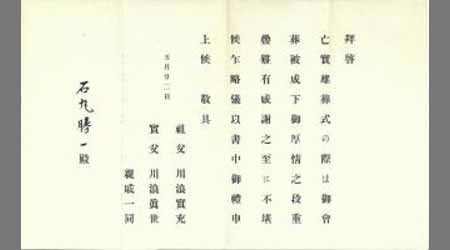 拜啓
亡實雄葬式の際は御會
葬被成下御厚情之段重
疊難有感謝之至に不堪
候乍略儀以書中御禮申
上候 敬具
五月廿二日
祖父 川浪實充
實父 川浪眞世
親戚一同
石丸勝一殿